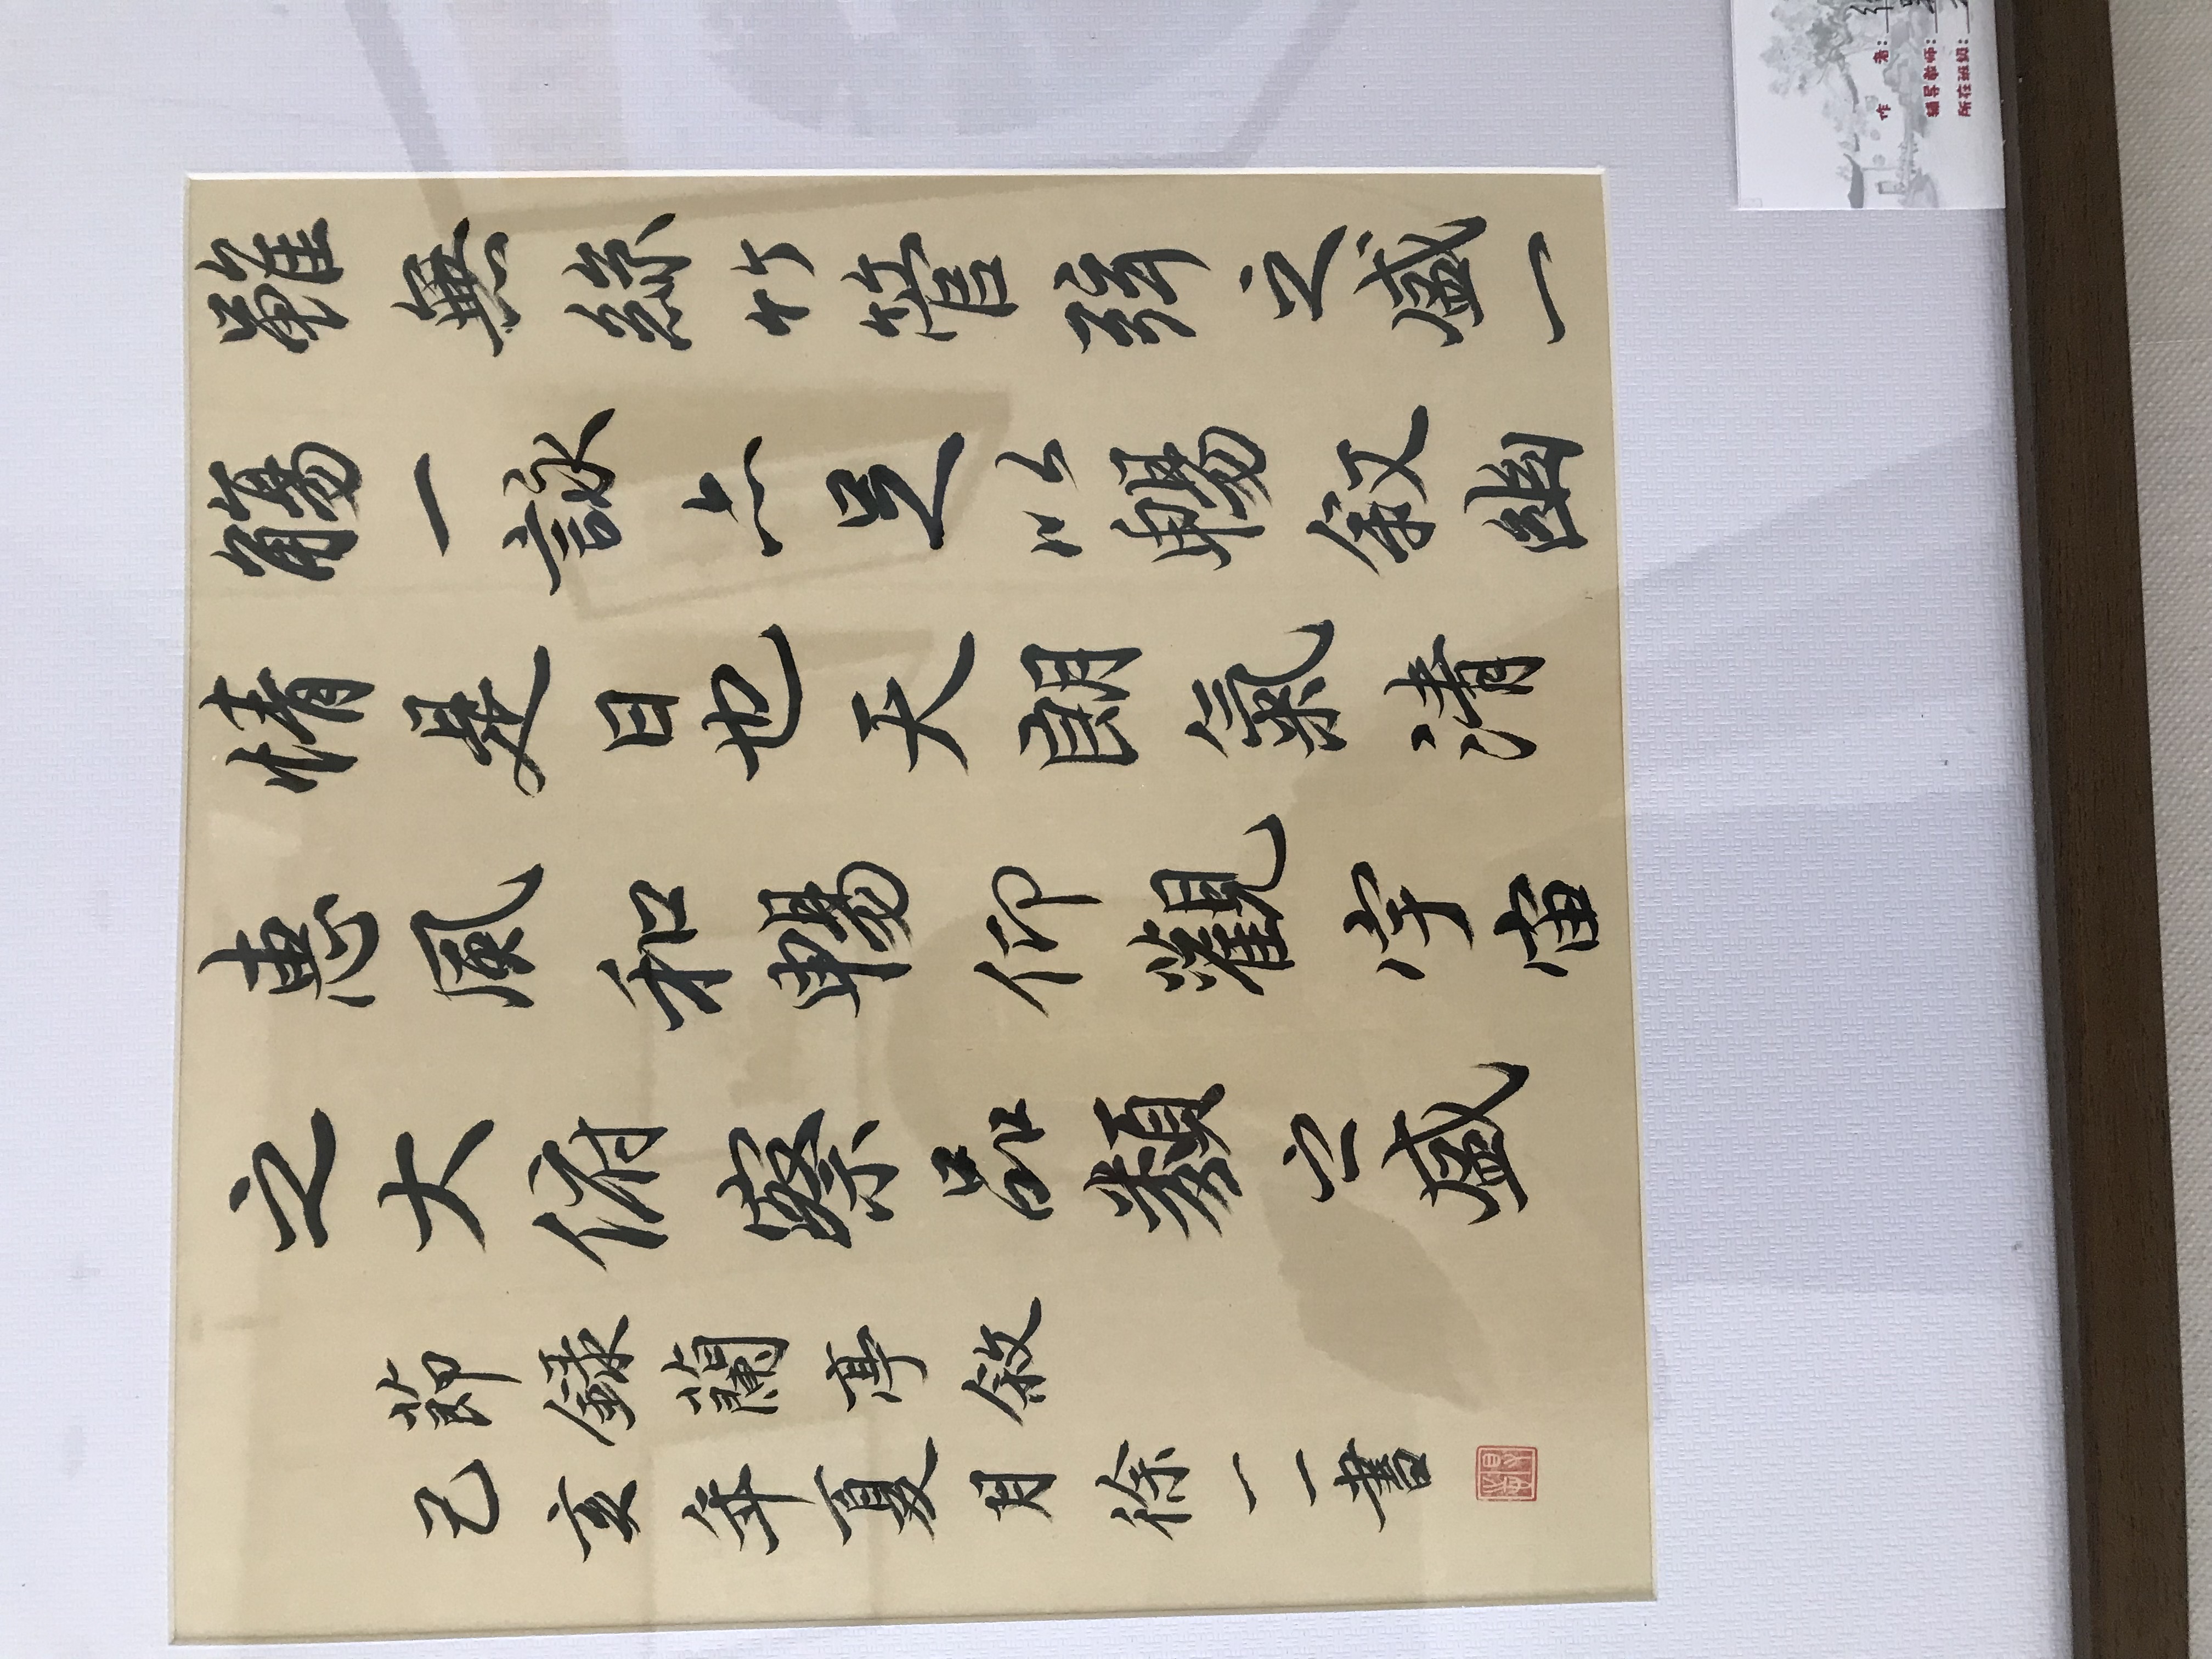 雖無絲竹管弦之盛一
觴一詠亦足以暢敘幽
情是日也天朗氣清
惠風和暢仰觀宇宙
之大俯察品類之盛
節錄蘭亭敘
己亥年夏月徐一一書
作者：
辅导教师：
所在班级：